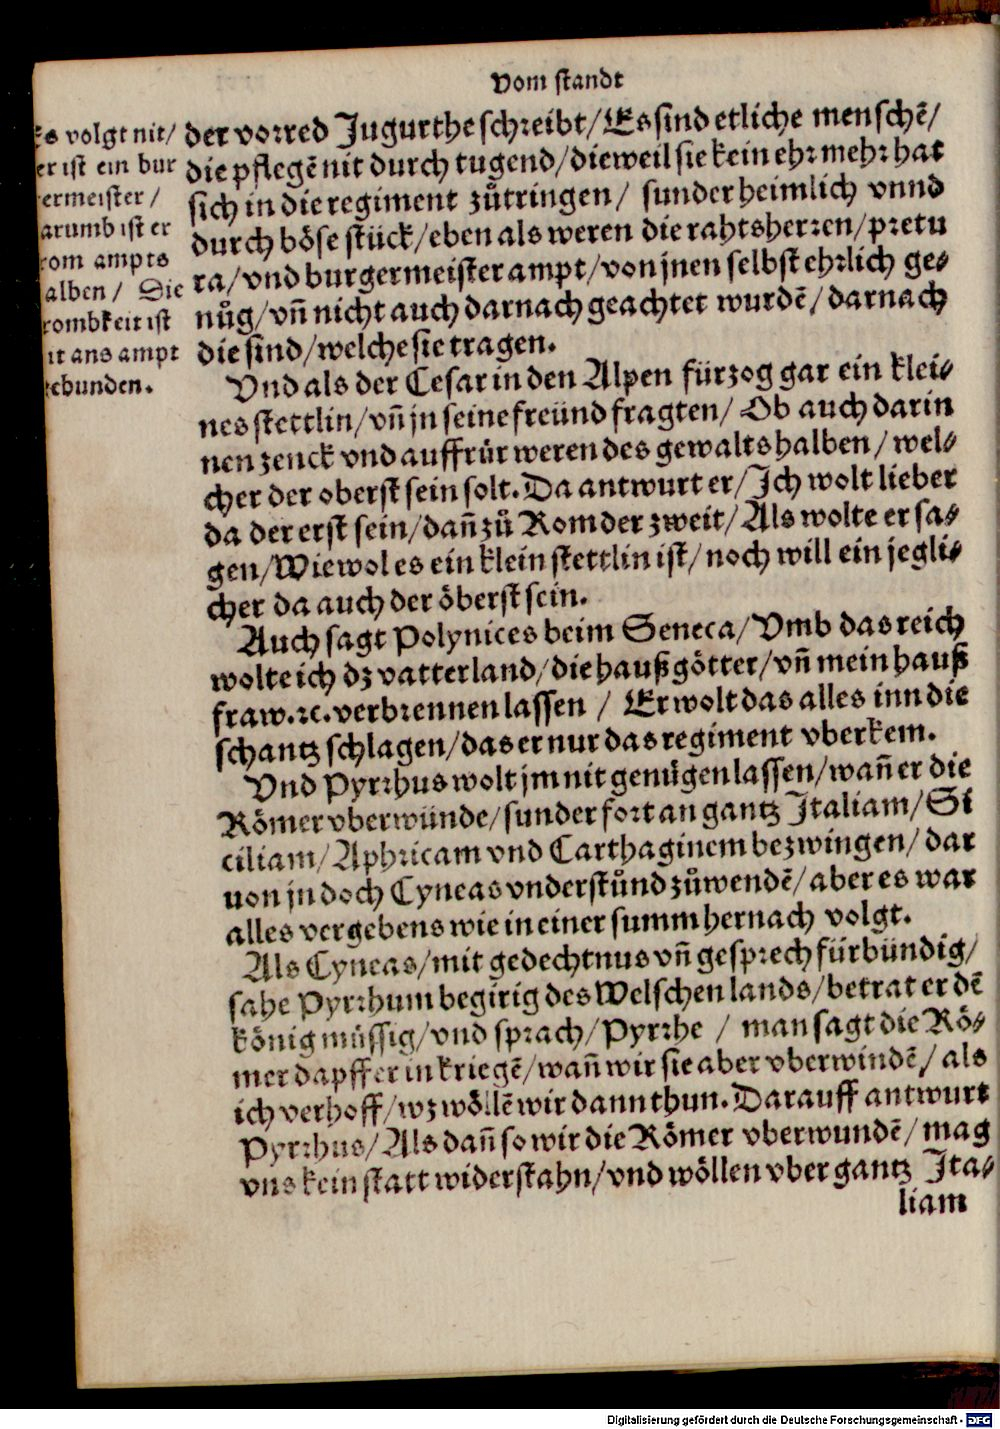 Vom standt
Es volgt nit/
er ist ein bur
ermeister /
arumb ist er
rom ampts
alben / Die
rombkeit ist
it ans ampt
ebunden.
der vorred Jugurthe schreibt/ Es sind etliche menschē/
die pflegē nit durch tugend/ dieweil sie kein ehr mehr hat
sich in die regiment zůtringen/ sunder heimlich vnnd
durch böse stück/ eben als weren die rahtsherren/ pretu
ra/ vnd burgermeister ampt/ von jnen selbst ehrlich ge-
nůg/ vn̄ nicht auch darnach geachtet wurdē/ darnach
die sind/ welche sie tragen.
Vnd als der Cesar in den Alpen fürzog gar ein klei-
nes stettlin/ vn̄ jn seine freünd fragten/ Ob auch darin
nen zenck vnd auffrůr weren des gewalts halben/ wel-
cher der oberst sein solt. Da antwurt er/ Ich wolt lieber
da der erst sein/ dan̄ zů Rom der zweit/ Als wolte er sa-
gen/ Wiewol es ein klein stettlin ist/ noch will ein jegli-
cher da auch der öberst sein.
Auch sagt Polynices beim Seneca/ Vmb das reich
wolte ich dz vatterland/ die haußgötter/ vn̄ mein hauß
fraw. ꝛc. verbrennen lassen / Er wolt das alles inn die
schantz schlagen/ das er nur das regiment vberkem.
Vnd Pyrrhus wolt jm nit genügen lassen/ wan̄ er die
Römer vberwünde/ sunder fort an gantz Italiam/ Si
ciliam/ Aphricam vnd Carthaginem bezwingen/ dar
uon jn doch Cyneas vnderstůnd zůwendē/ aber es war
alles vergebens wie in einer summ hernach volgt.
Als Cyneas/ mit gedechtnus vn̄ gesprech fürbündig/
sahe Pyrrhum begirig des Welschen lands/ betrat er dē
könig müssig/ vnd sprach/ Pyrrhe / man sagt die Rö-
mer dapffer in kriegē/ wan̄ wir sie aber vberwindē/ als
ich verhoff/ wz wöllē wir dann thun. Darauff antwurt
Pyrrhus/ Als dan̄ so wir die Römer vberwundē/ mag
vns kein statt widerstahn/ vnd wöllen vber gantz Ita-
liam
Digitalisierung gefördert durch die Deutsche Forschungsgemeinschaft - DFG